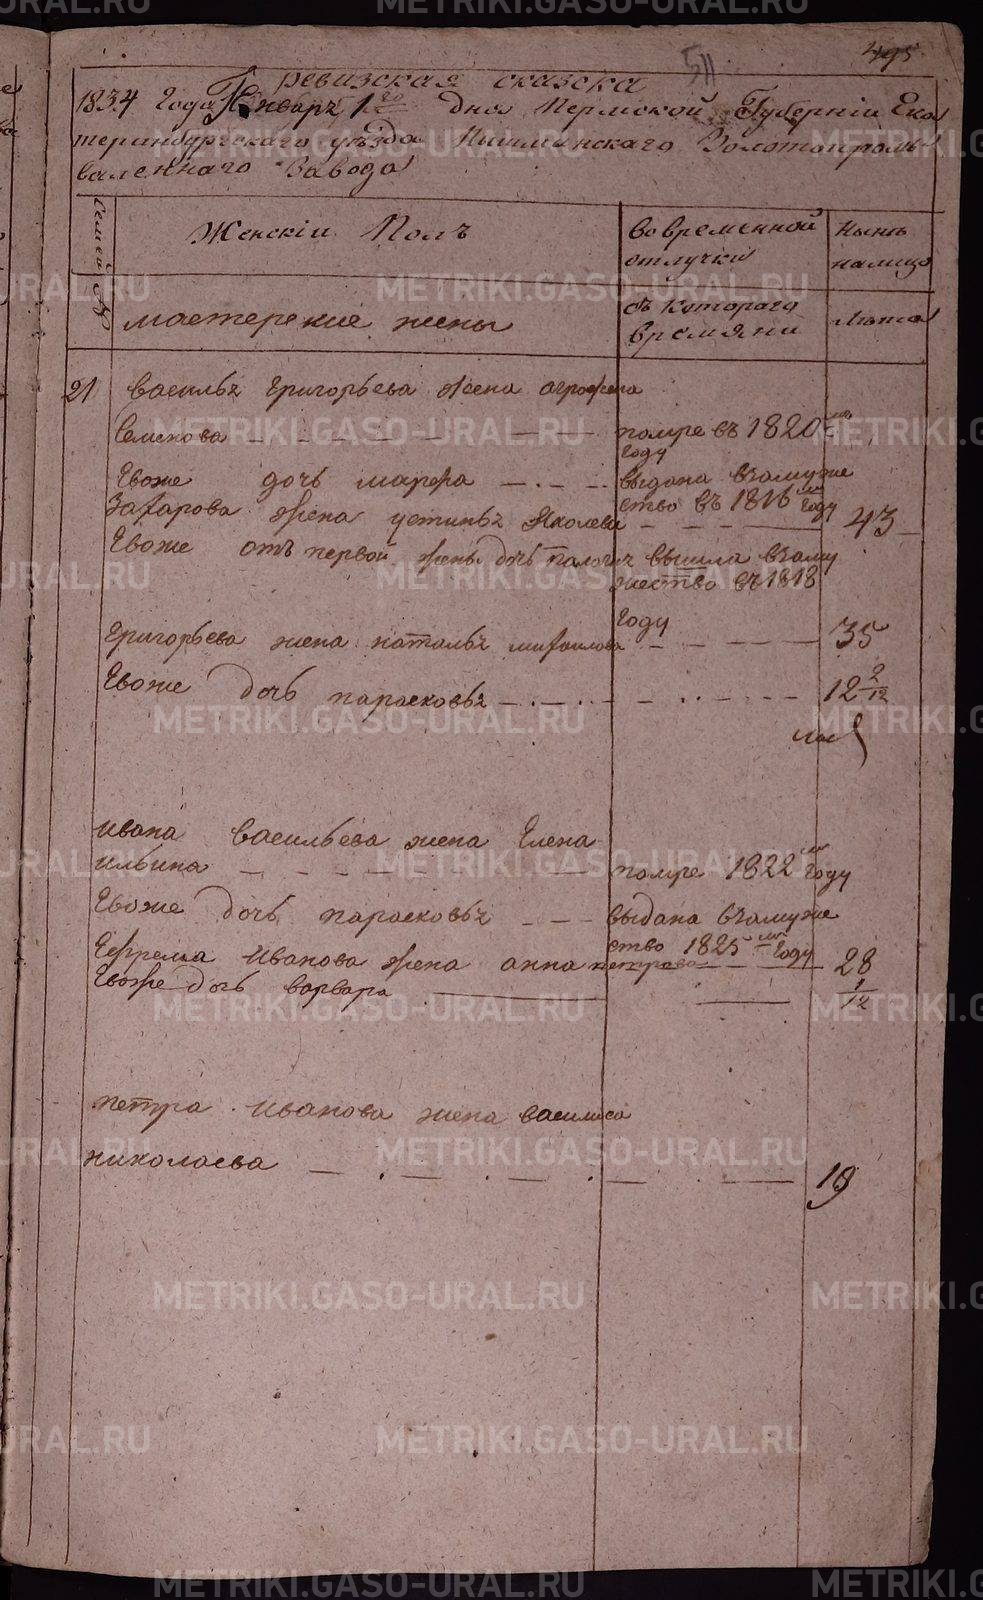 495
511
ревизская сказска
1834 года Январѧ 1 20 дня Пермской Губернiи Ека
теринбургскаго уѣзда Пышминскаго Золотопром
валеннаго Завода
Семей №
Женскiи Полъ
во временной отлучки
Нынѣ налицо
мастерские жены
съ котораго времяни
Лѣта
21 василья григорьева жена агрофена
Семенова помре въ 1820 мъ году
Евоже дочь марфа выдана взамуже
ство въ 1816 м году
Захарова жена устинья Яковлева 43
Евоже отъ первой жены дочь вышла взаму
жество въ 1818 году
григорьева жена наталья михаилова 35
Евоже дочь парасковья 12 2/12
ивана васильева жена Елена
ильина помре 1822 м году
Евоже дочь парасковья выдана взамуже
ство 1825 м году
Ефрема иванова жена анна петрова 28
Евоже дочь варвара 1/12
петра иванова жена василиса
николаева 19
METRIKI.GASO-URAL.RU